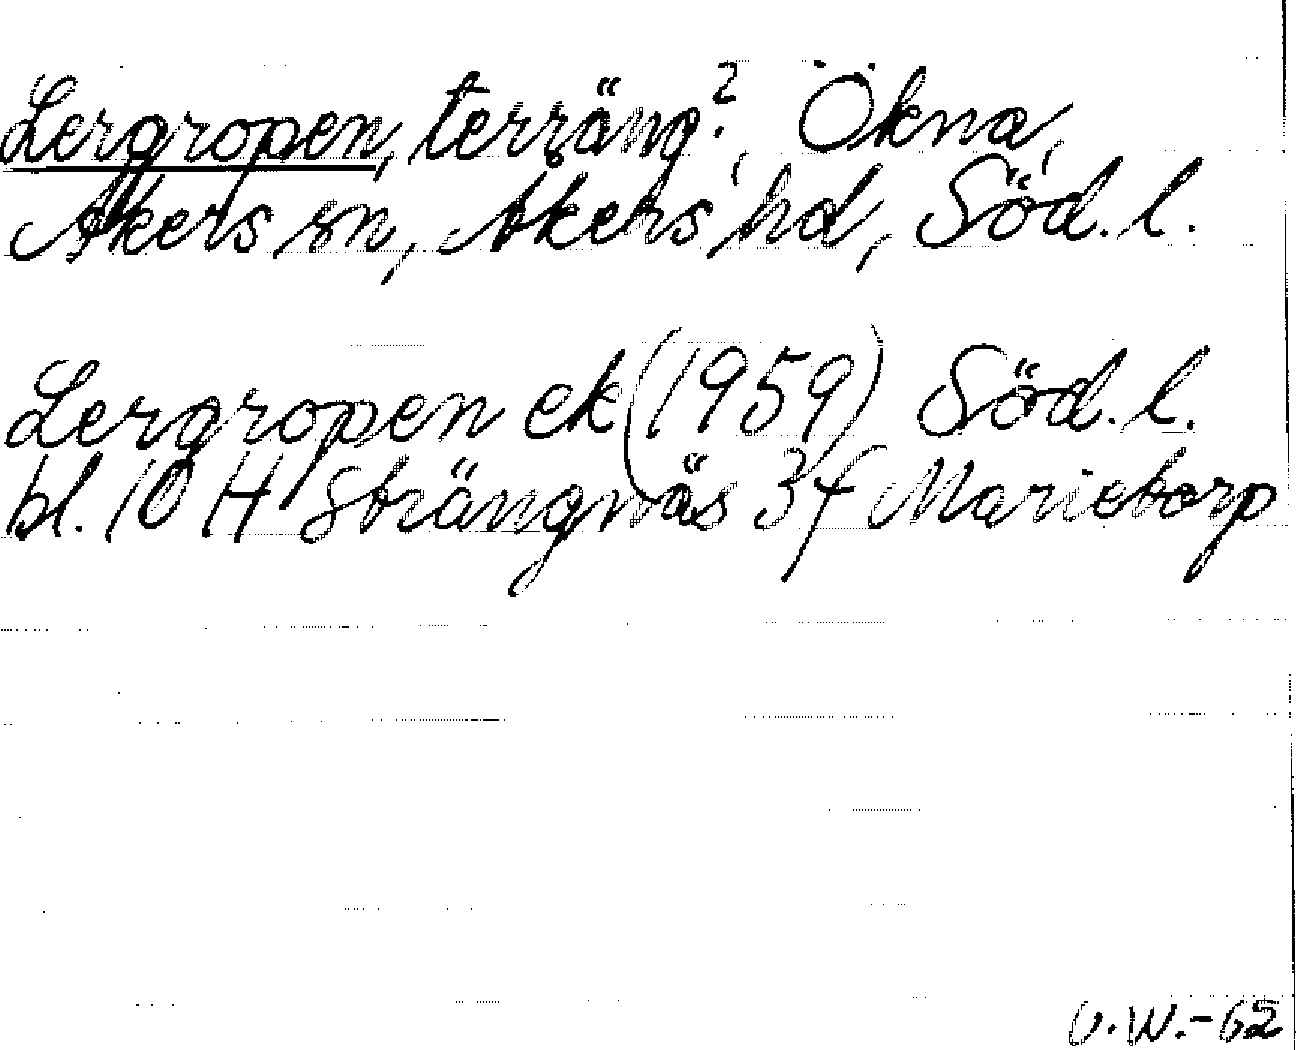 Lergropen, terräng?, Ökna,
Åkers sn, Åkers hd, Söd. l.
Lergropen ek (1959) Söd. l.
bl. 10 H Strängnäs 3 f Marieborg
O.W.-62